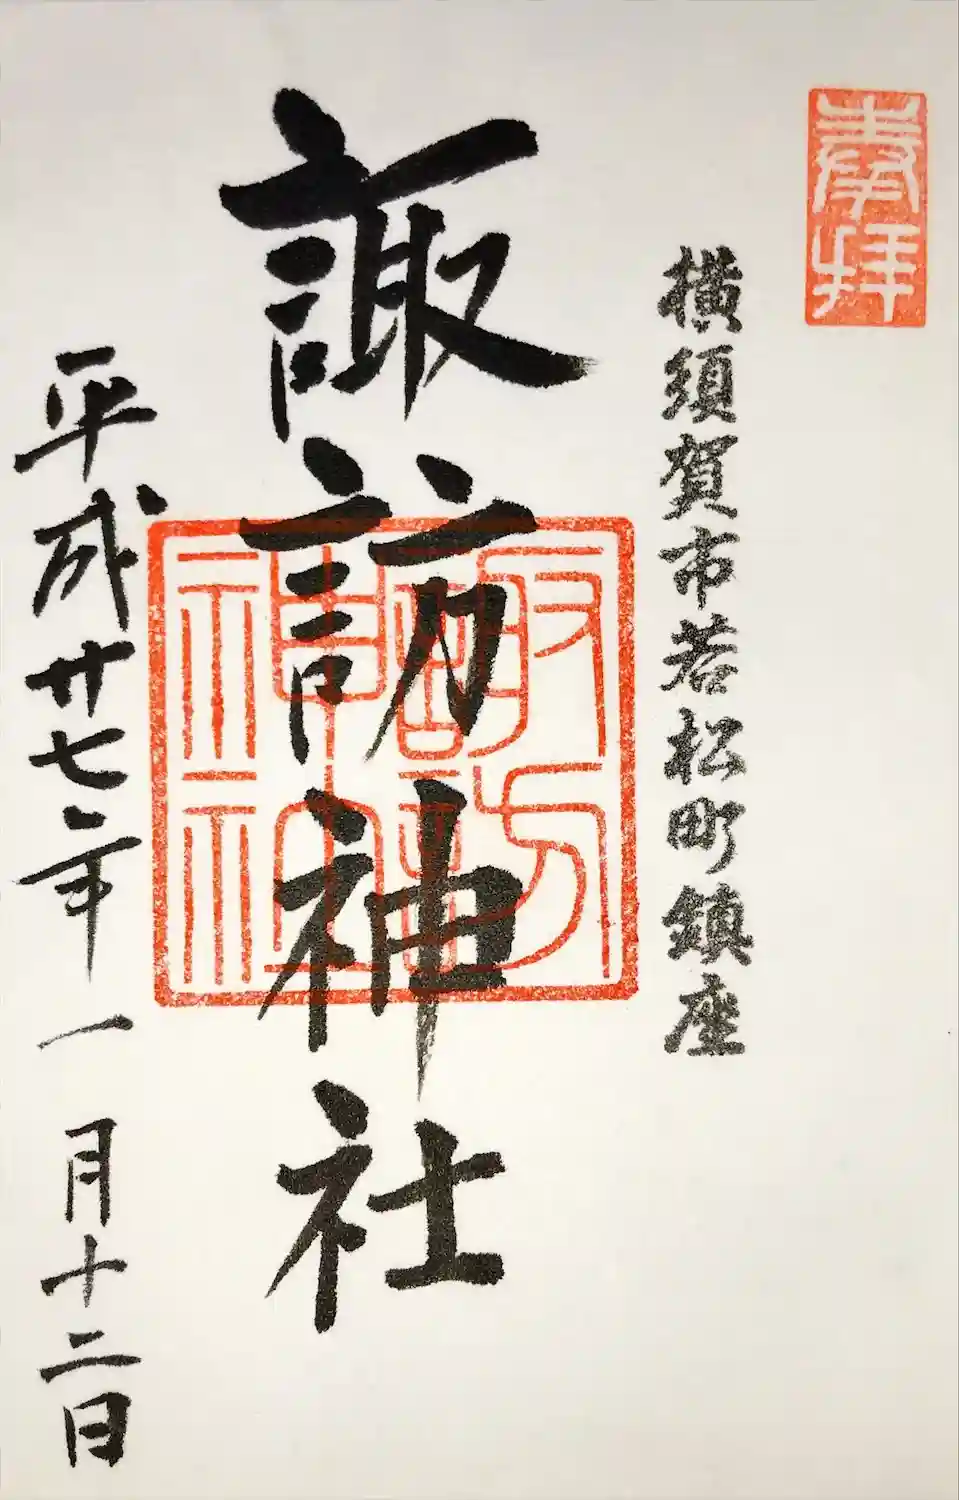 奉拝
横須賀市若松町鎮座
諏訪神社
諏訪神社
平成廿七年一月十二日